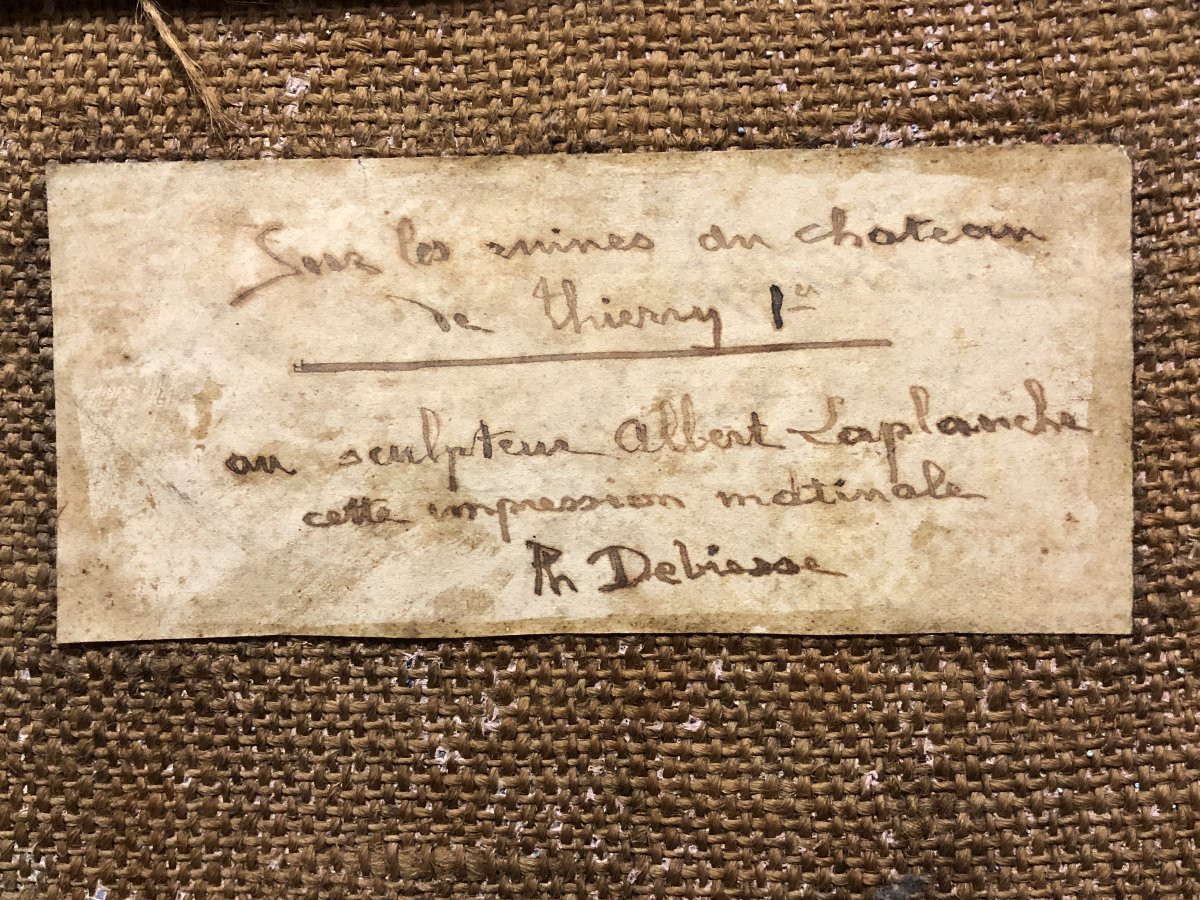 Sous les ruines du chateau
de Thierry 1er
au sculpteur Albert Laplanche
cette impression matinale
Ph Debiesse